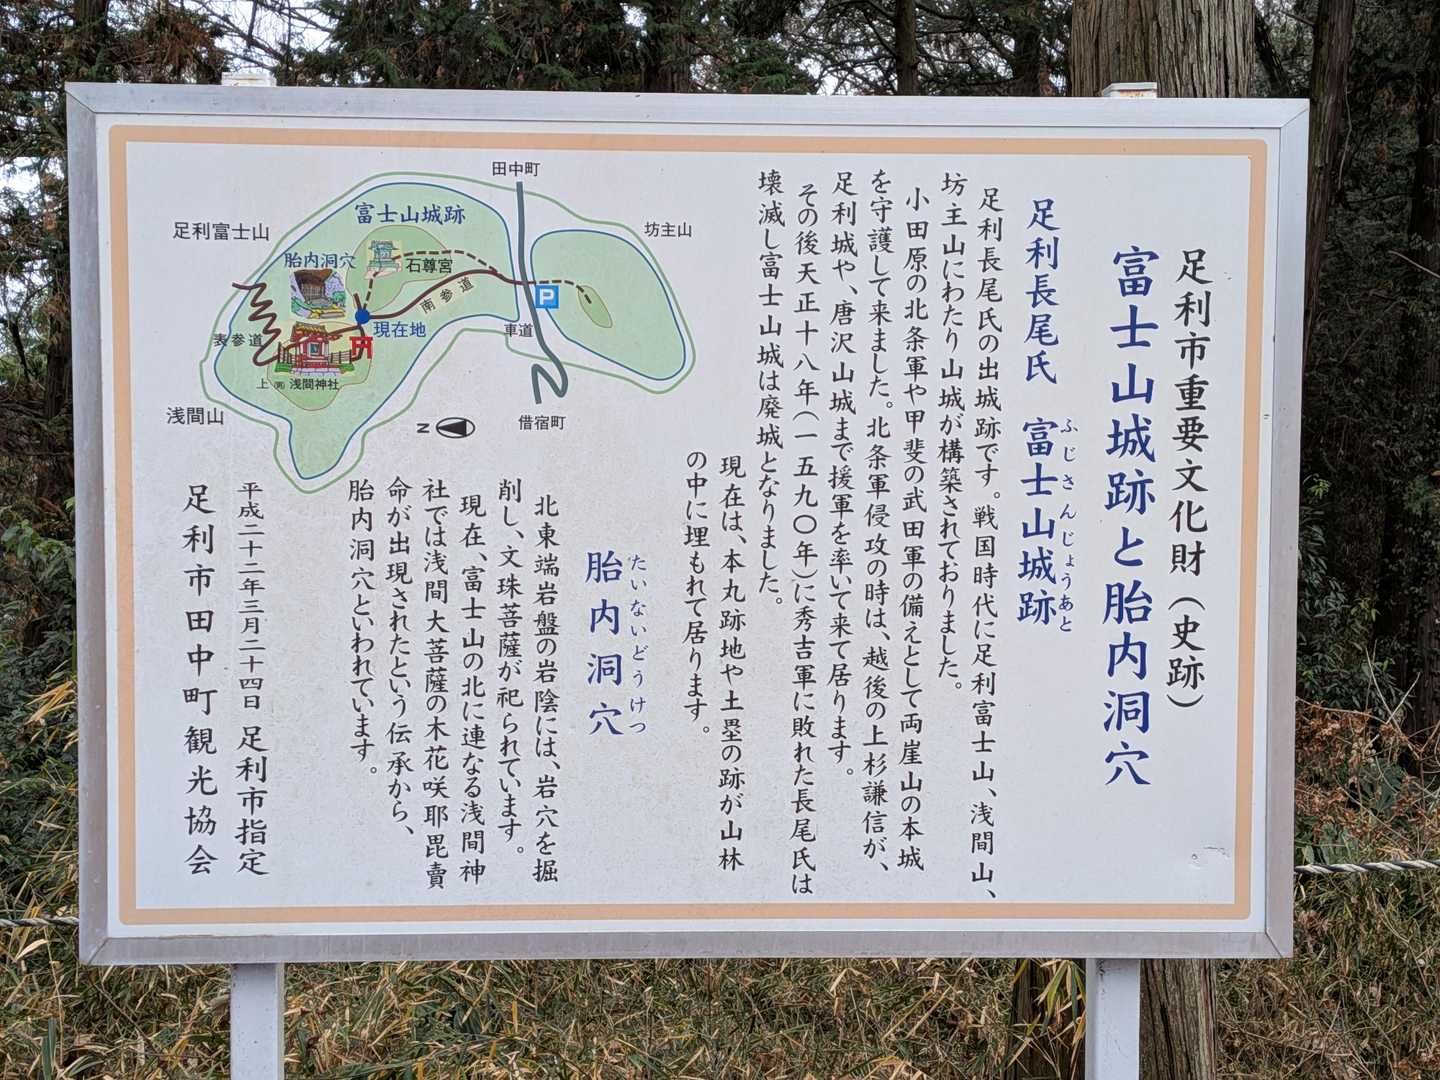 足利市重要文化財（史跡）
富士山城跡と胎内洞穴
足利長尾氏　富士山城跡
ふじさんじょうあと
足利長尾氏の出城跡です。戦国時代に足利富士山、浅間山、
坊主山にわたり山城が構築されておりました。
小田原の北条軍や甲斐の武田軍の備えとして両崖山の本城
を守護して来ました。北条軍侵攻の時は、越後の上杉謙信が、
足利城や、唐沢山城まで援軍を率いて来て居ります。
その後天正十八年（一五九〇年）に秀吉軍に敗れた長尾氏は
壊滅し富士山城は廃城となりました。
現在は、本丸跡地や土塁の跡が山林
の中に埋もれて居ります。
胎内洞穴
たいないどうけつ
北東端岩盤の岩陰には、岩穴を掘
削し、文珠菩薩が祀られています。
現在、富士山の北に連なる浅間神
社では浅間大菩薩の木花咲耶毘賣
命が出現されたという伝承から、
胎内洞穴といわれています。
平成二十二年三月二十四日 足利市指定
足利市田中町観光協会
田中町
富士山城跡
足利富士山
坊主山
胎内洞穴
石尊宮
南参道
P
現在地
車道
表参道
上
浅間神社
浅間山
借宿町
N